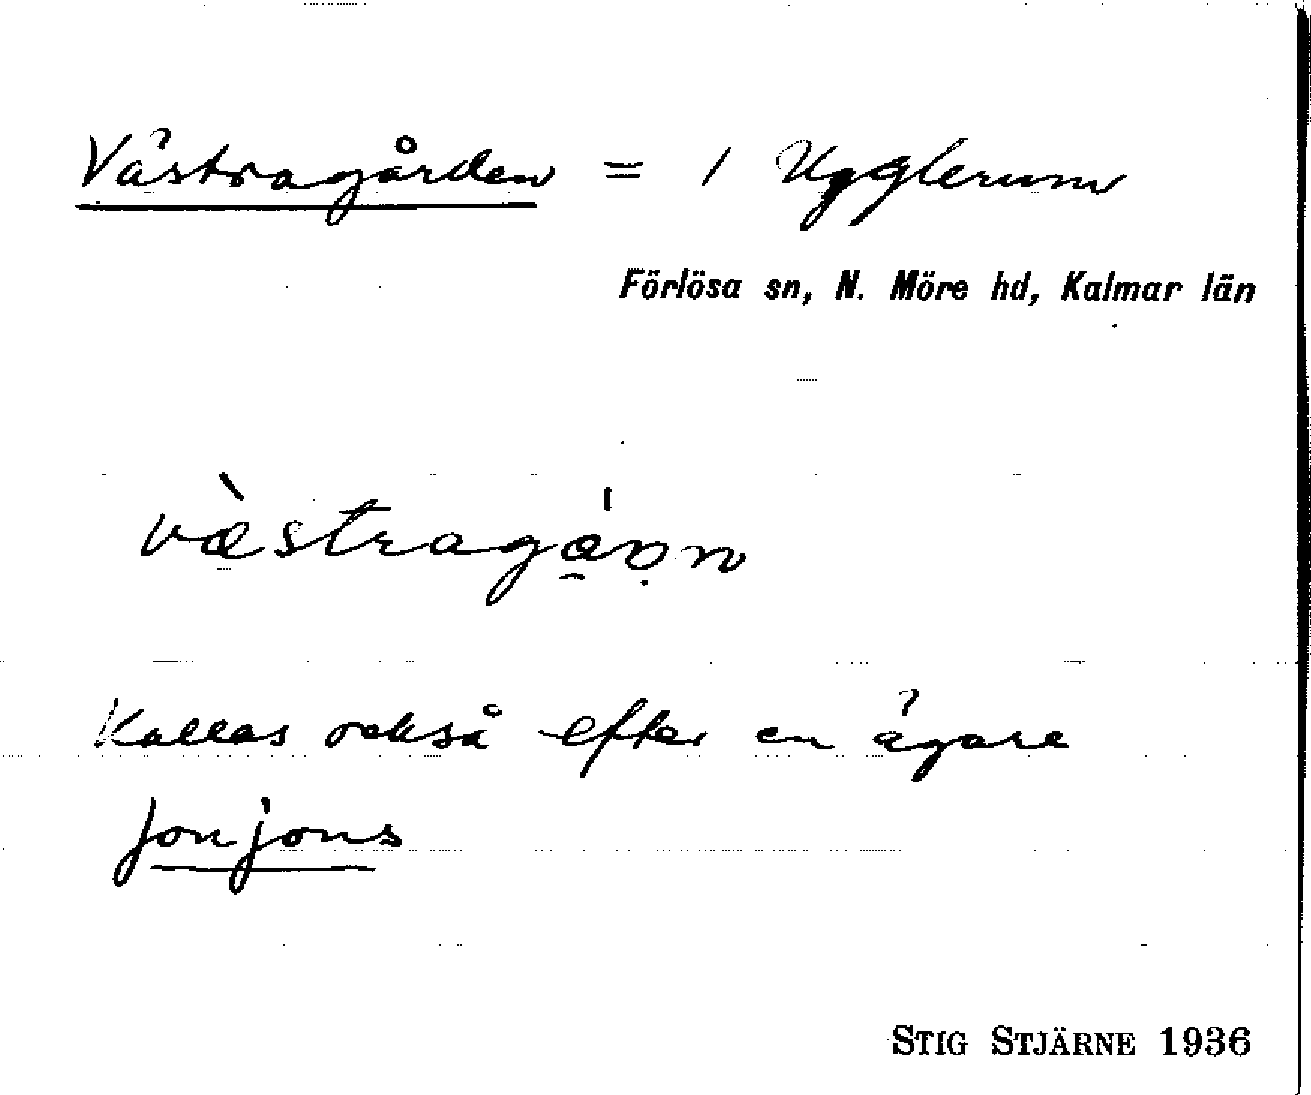 Västragården = / Ugglerum
Förlösa sn, N. Möre hd, Kalmar län
Kallas också efter en ägare
Jonjons
STIG STJÄRNE 1936